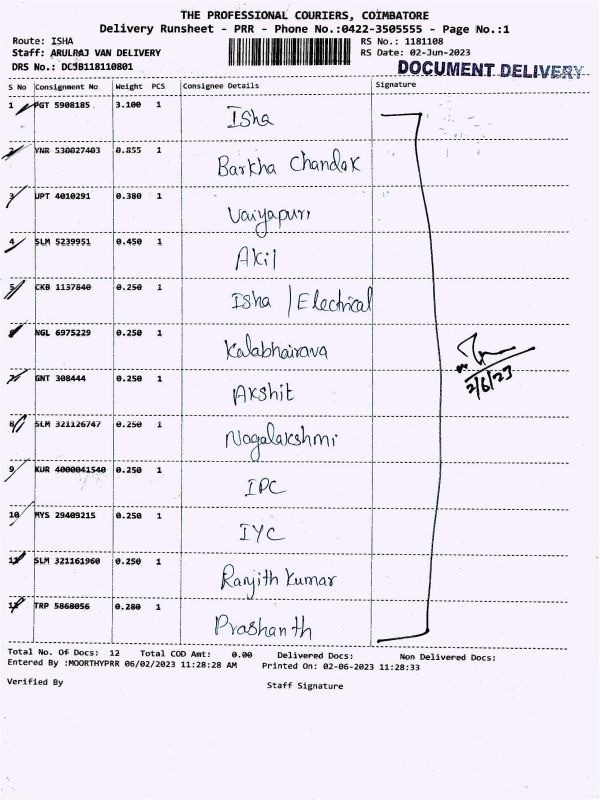 THE PROFESSIONAL COURIERS, COIMBATORE
Delivery Runsheet - PRR - Phone No.:0422-3505555 - Page No.:1
Route: ISHA RS No.: 1181108
Staff: ARULRAJ VAN DELIVERY RS Date: 02-Jun-2023
DRS No.: DCJB118110801 DOCUMENT DELIVERY
S No Consignment No Weight PCS Consignee Details Signature
1 PGT 5908185 3.100 1 Isha
2 YNR 530027403 0.855 1 Barkha Chandak
3 UPT 4010291 0.380 1 Vaiyapuri
4 SLM 5239951 0.450 1 Akil
5 CKB 1137840 0.250 1 Isha / Electrical
NGL 6975229 0.250 1 Kalabhairava
7 GNT 308444 0.250 1 Akshit
2/6/23
8 SLM 321126747 0.250 1 Nagalakshmi
9 KUR 4000041540 0.250 1 IPC
10 MYS 29409215 0.250 1 IYC
11 SLM 321161960 0.250 1 Ranjith Kumar
12 TRP 5868056 0.280 1 Prashanth
Total No. Of Docs: 12 Total COD Amt: 0.00 Delivered Docs: Non Delivered Docs:
Entered By :MOORTHYPRR 06/02/2023 11:28:28 AM Printed On: 02-06-2023 11:28:33
Verified By Staff Signature